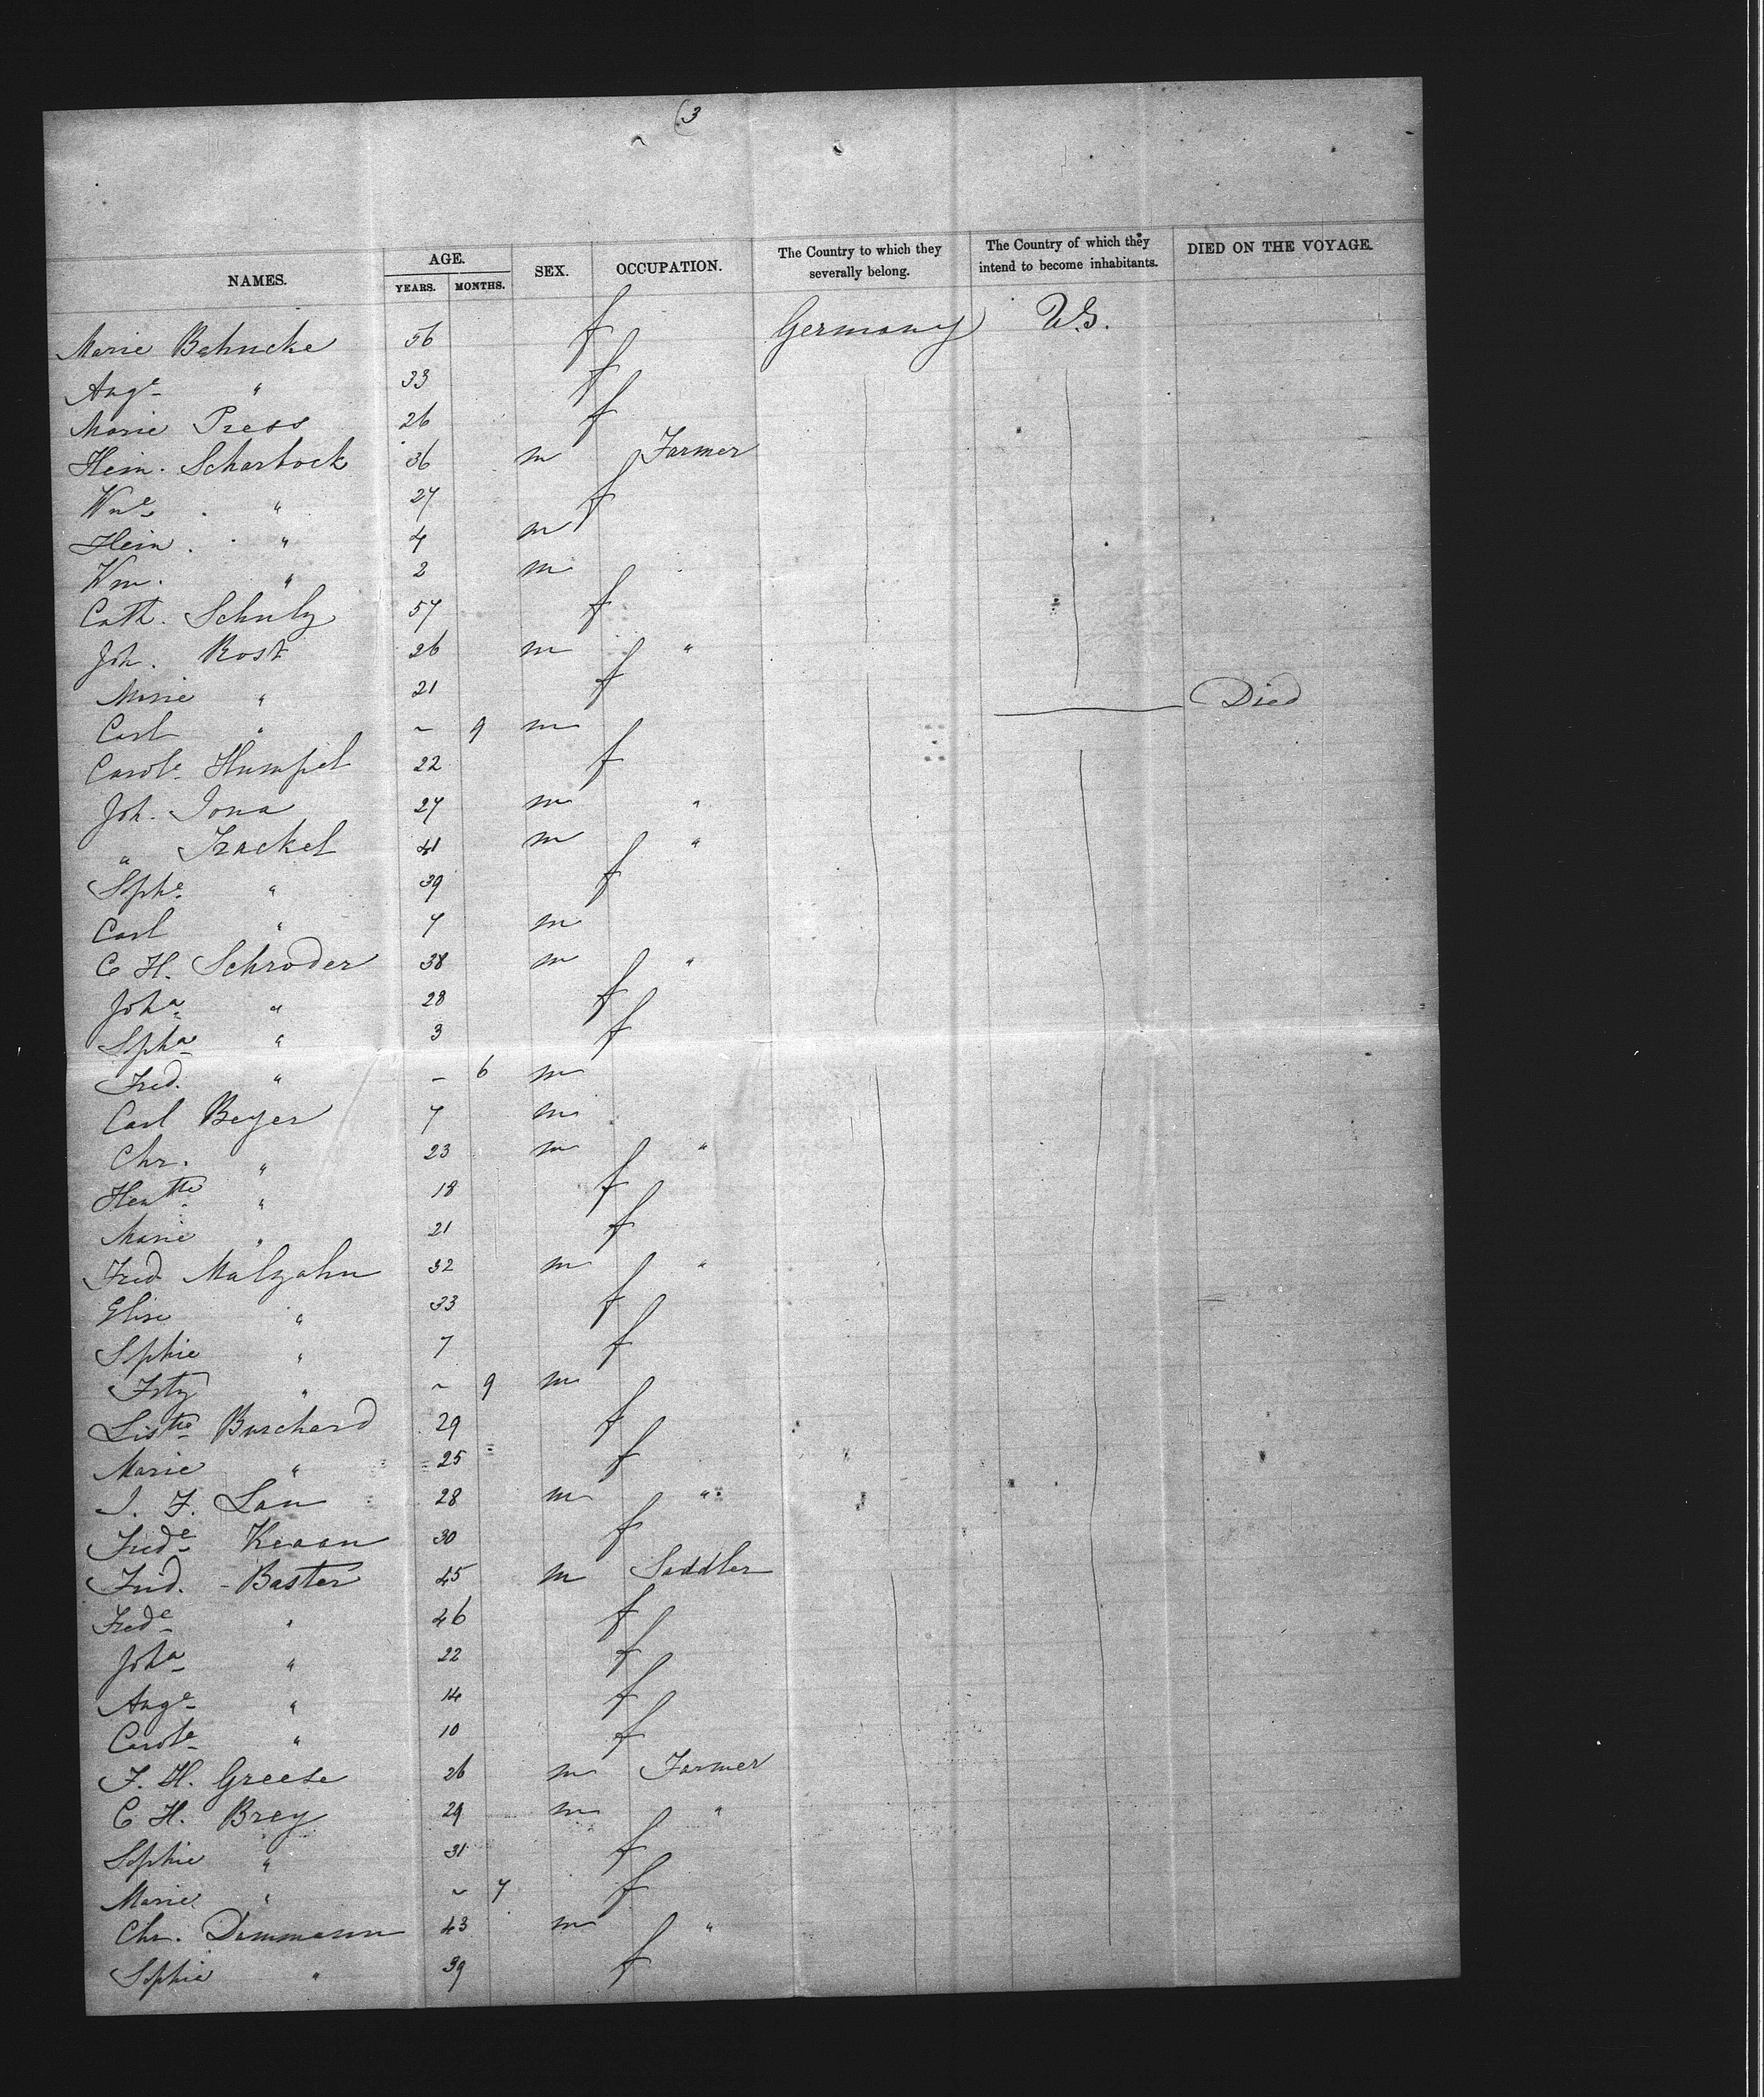 (3
NAMES. AGE. YEARS. MONTHS. SEX. OCCUPATION. The Country to which they severally belong. The Country of which they intend to become inhabitants. DIED ON THE VOYAGE.
Marie Bahncke 56 f Germany U.S.
Auge " 33 f
Marie Press 26 f
Hein. Scharbock 36 m Farmer
Wme " 27 f
Hein. " 4 m
Wm. " 2 m
Cath. Schulz 57 f
Joh. Rost 26 m "
Marie " 21 f
Carl " ~ 9 m Died
Carole Humpel 22 f
Joh. Jona 27 m "
" Frackel 41 m "
Sophe " 39 f
Carl " 7 m
C H. Schroder 38 m "
Joha " 28 f
Sopha " 3 f
Fred. " – 6 m
Carl Beyer 7 m
Chr. " 23 m "
Hentte " 18 f
Marie " 21 f
Fred Malzahn 32 m "
Elise " 33 f
Sophie " 7 f
Fritz " ~ 9 m
Listte Burchard 29 f
Marie " 25 f
J. F. Lau 28 m "
Frede Kraan 30 f
Fred. Baster 45 m Saddler
Frede " 46 f
Joha " 22 f
Auge " 14 f
Carole " 10 f
F. H. Greese 26 m Farmer
C H. Brey 29 m "
Sophie " 31 f
Marie " ~ 7 f
Chr. Dammann 43 m "
Sophie " 39 f